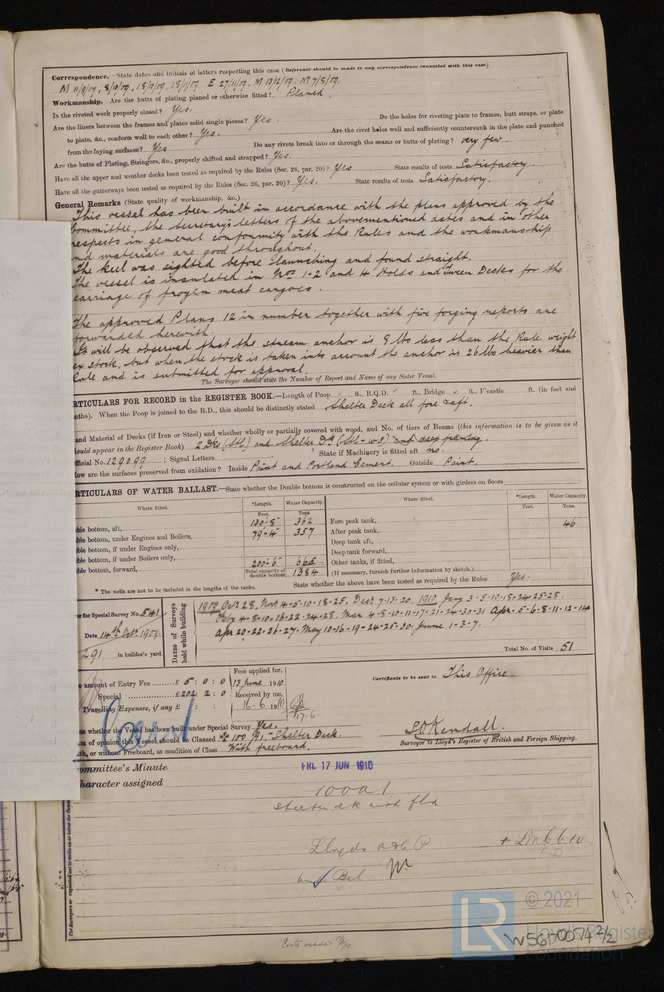 Correspondence.—State dates and initials of letters respecting this case (Reference should be made to any correspondence connected with this case).
Workmanship. Are the butts of plating planed or otherwise fitted? Planed
Is the riveted work properly closed? Yes.
Are the liners between the frames and plates solid single pieces? Yes. Do the holes for riveting plate to frames, butt straps, or plate
to plate, &c., conform well to each other? Yes. Are the rivet holes well and sufficiently countersunk in the plate and punched
from the faying surfaces? Yes Do any rivets break into or through the seams or butts of plating? very few.
Are the butts of Plating, Stringers, &c., properly shifted and strapped? Yes.
Have all the upper and weather decks been tested as required by the Rules (Sec. 26, par. 20)? Yes State results of tests Satisfactory.
Have all the gutterways been tested as required by the Rules (Sec. 26, par. 20)? Yes. State results of tests Satisfactory.
General Remarks (State quality of workmanship, &c.)
This vessel has been built in accordance with the plans approved by the
Committee, the Secretary's letters of the abovementioned dates and in other
respects in general conformity with the Rules and the workmanship
and materials are good throughout.
The keel was sighted before launching and found straight.
The vessel is insulated in Nos 1-2 and 4 Holds and tween Decks for the
carriage of frozen meat cargoes.
The approved Plans 12 in number together with five forging reports are
forwarded herewith.
It will be observed that the stream anchor is 8 lbs less than the Rule weight
ex stock, but when the stock is taken into account the anchor is 26 lbs heavier than
Rule and is submitted for approval.
The Surveyor should state the Number of Report and Name of any Sister Vessel.
PARTICULARS FOR RECORD in the REGISTER BOOK.—Length of Poop ft., R.Q.D. ft., Bridge ft., F'castle ft. (in feet and
When the Poop is joined to the B.D., this should be distinctly stated Shelter Deck all fore & aft.
and Material of Decks (if Iron or Steel) and whether wholly or partially covered with wood, and No. of tiers of Beams (this information is to be given as it
should appear in the Register Book) 2 Dks (Stl) and Shelter Dk
Official No. 129099 ; Signal Letters State if Machinery is fitted aft no.
How are the surfaces preserved from oxidation? Inside Paint and Portland Cement. Outside Paint.
PARTICULARS OF WATER BALLAST.—State whether the Double bottom is constructed on the cellular system or with girders on floors
Where fitted. *Length. Water Capacity. Where fitted. *Length. Water Capacity.
Feet. Tons Feet. Tons
ble bottom, aft, 130-8 362 Fore peak tank, 46
ble bottom, under Engines and Boilers, 79-4 357 After peak tank,
ble bottom, if under Engines only, Deep tank aft,
ble bottom, if under Boilers only, Deep tank forward,
ble bottom, forward, 200-6 665 Other tanks, if fitted,
Total capacity of double bottom 1384 (If necessary, furnish further information by sketch.)
* The wells are not to be included in the lengths of the tanks. State whether the above have been tested as required by the Rules Yes.
er for Special Survey No. 541
Date 14th Oct. 1909
291 in builder's yard.
Dates of Surveys held while building
1909 Oct. 28, Nov. 4-5-10-18-25. Dec. 7-13-20. 1910 Jany 3-5-10-18-24-25-28.
Feby 4-8-10-16-22-24-28. Mar. 4-8-10-11-17-21-24-30-31 Apr. 5-6-8-11-12-14
Apr 20-22-26-27. May 10-16-19-24-25-30. June 1-3-7.
Total No. of Visits 51
amount of Entry Fee £ 5 : 0 : 0 Fees applied for,
Special £ 202 : 2 : 0 13 June 1910
Travelling Expenses, if any £ Received by me, 16-6 1910
Certificates to be sent to This Office.
te whether the Vessel has been built under Special Survey Yes.
m of opinion this Vessel should be Classed 100 A1, "Shelter Deck.
th, or without Freeboard, as condition of Class With freeboard.
Kendall.
Surveyor to Lloyd's Register of British and Foreign Shipping.
Committee's Minute FRI. 17 JUN 1910
Character assigned 100A1
Shelter dk with fbd
Lloyds A & C P + LMC 6.10
© 2021
LR
Lloyd's Register
Foundation